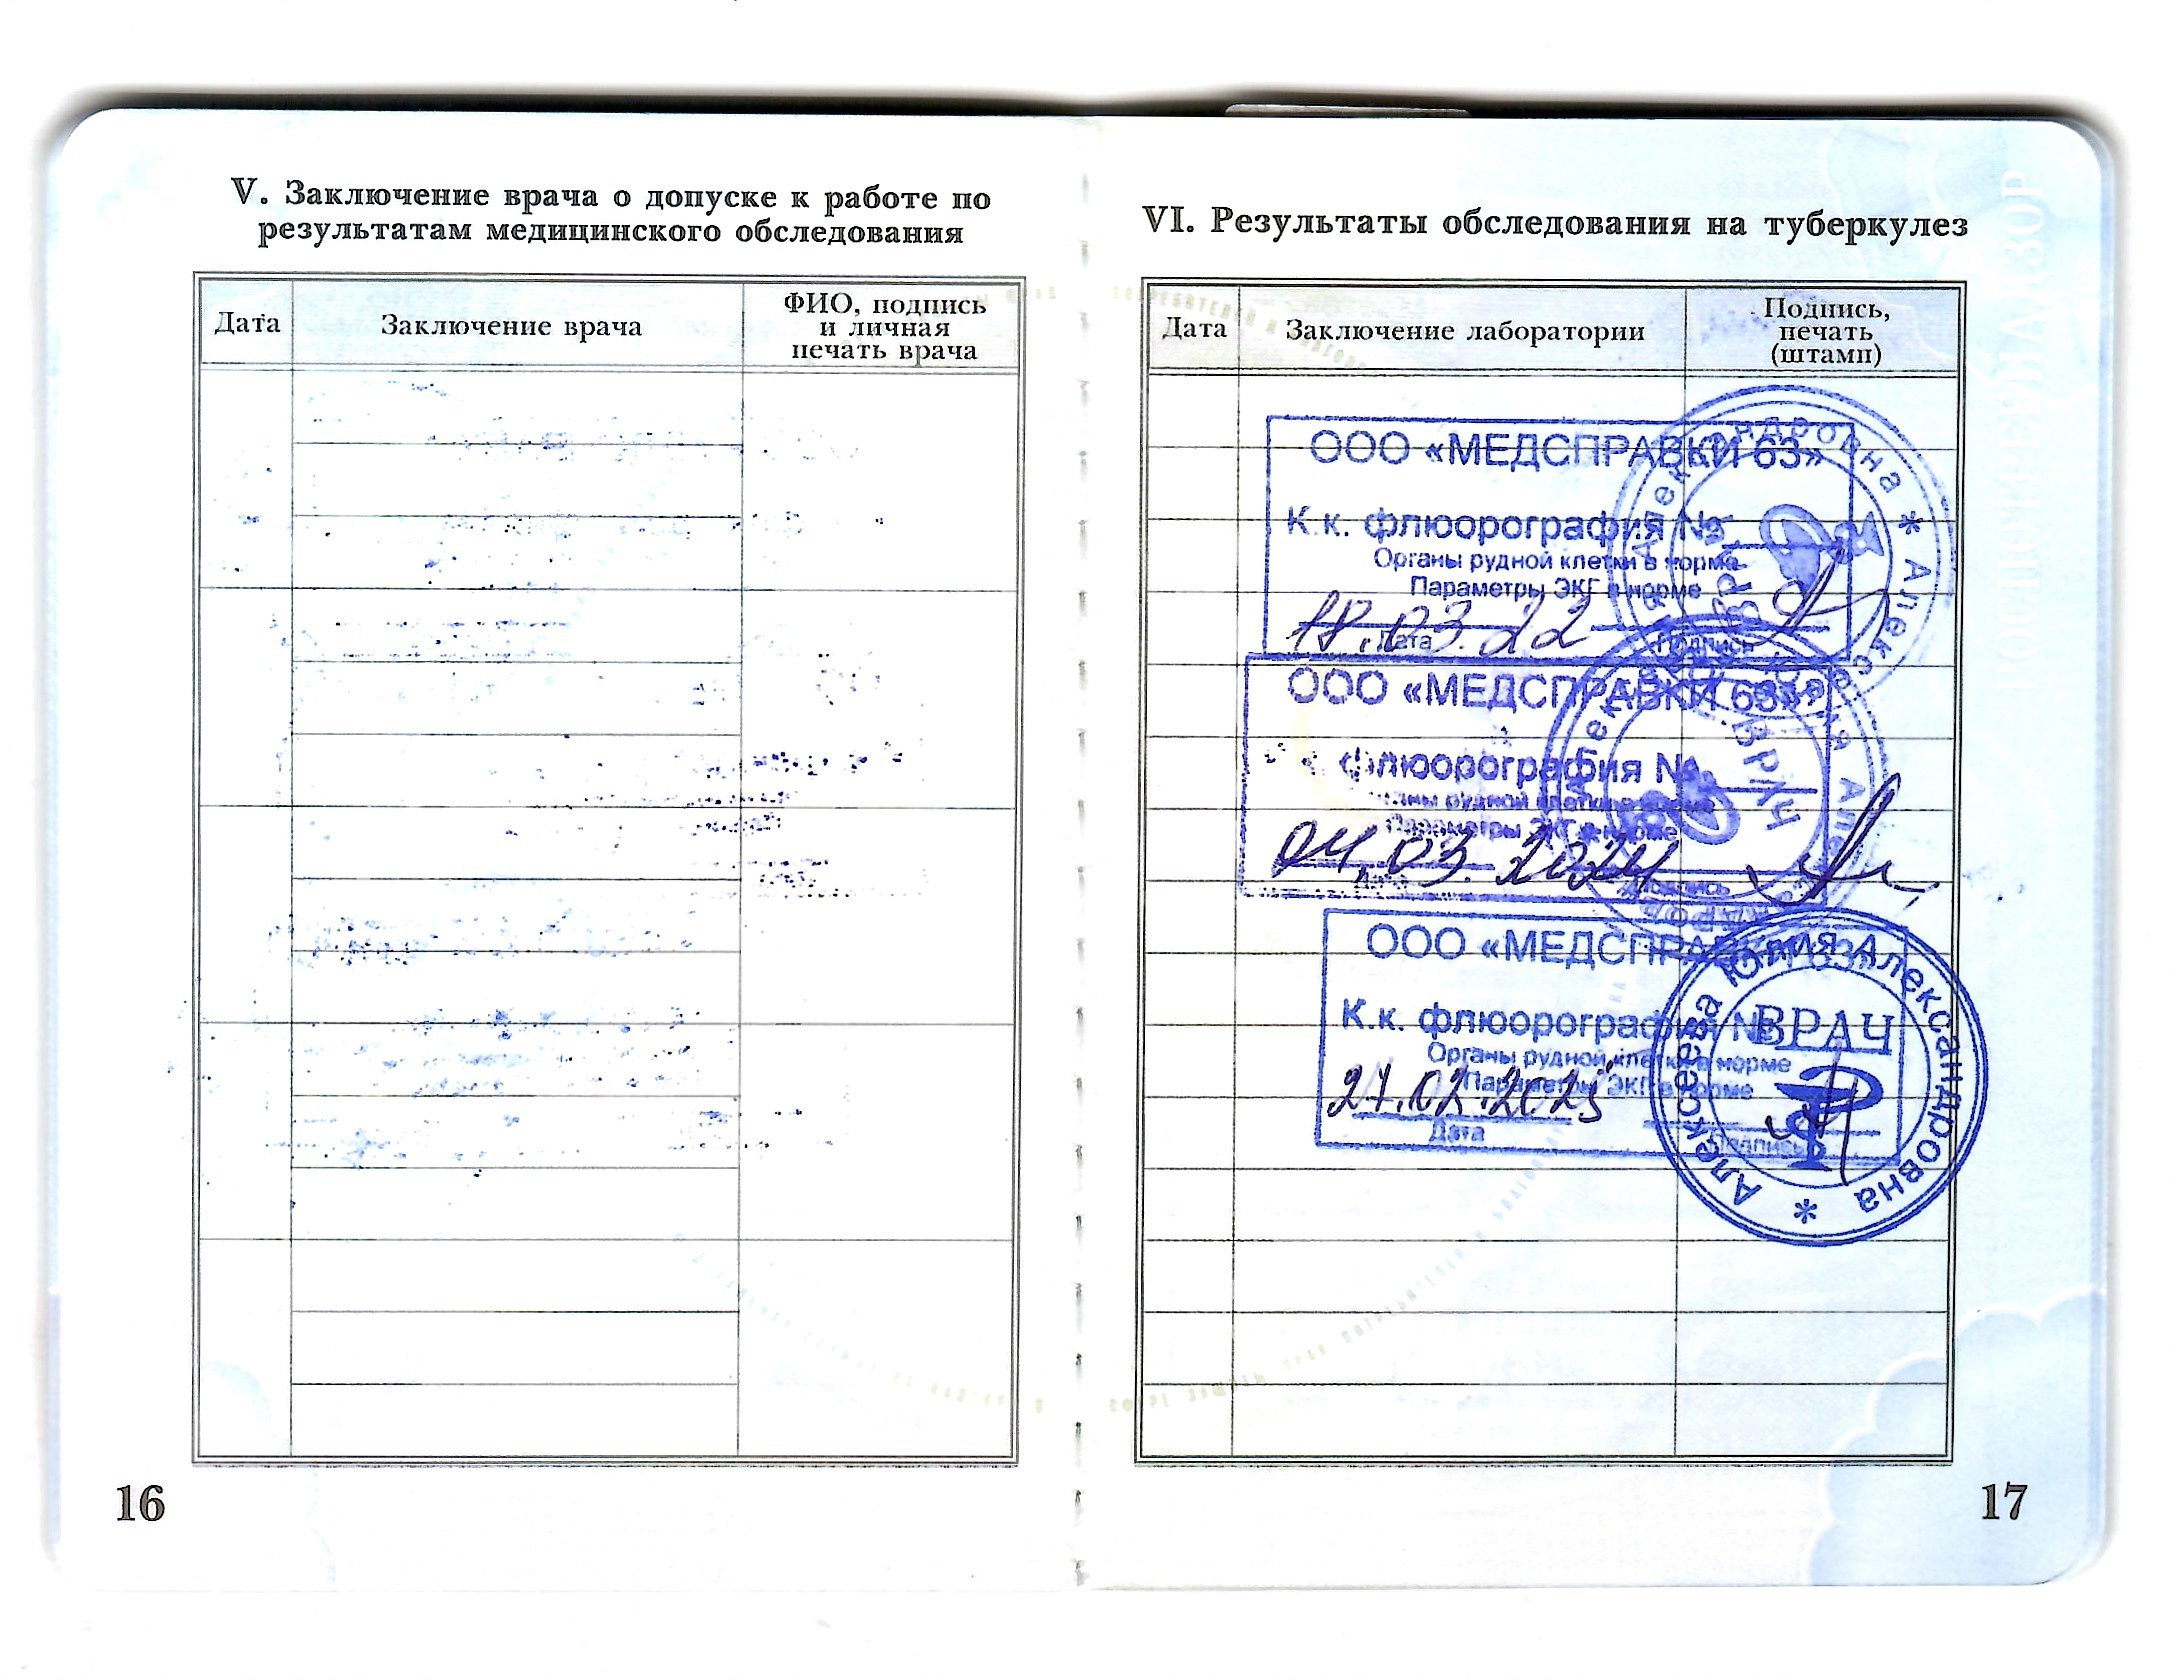 V. Заключение врача о допуске к работе по
результатам медицинского обследования
Дата
Заключение врача
ФИО, подпись
и личная
печать врача
16
VI. Результаты обследования на туберкулез
Дата
Заключение лаборатории
Подпись,
печать
(штамп)
ООО «МЕДСПРАВКИ 63»
К.к. флюорография №
Органы рудной клетки в норме
Параметры ЭКГ в норме
18.03.22
Дата
Подпись
ООО «МЕДСПРАВКИ 63»
флюорография №
рудной клетки в норме
Параметры ЭКГ в норме
04.03.2024
Дата
Подпись
ВРАЧ
ООО «МЕДСПРАВКИ 63»
К.к. флюорография №
Органы рудной клетки в норме
Параметры ЭКГ в норме
27.02.2025
Дата
Подпись
Алексеева Юлия Александровна *
ВРАЧ
17